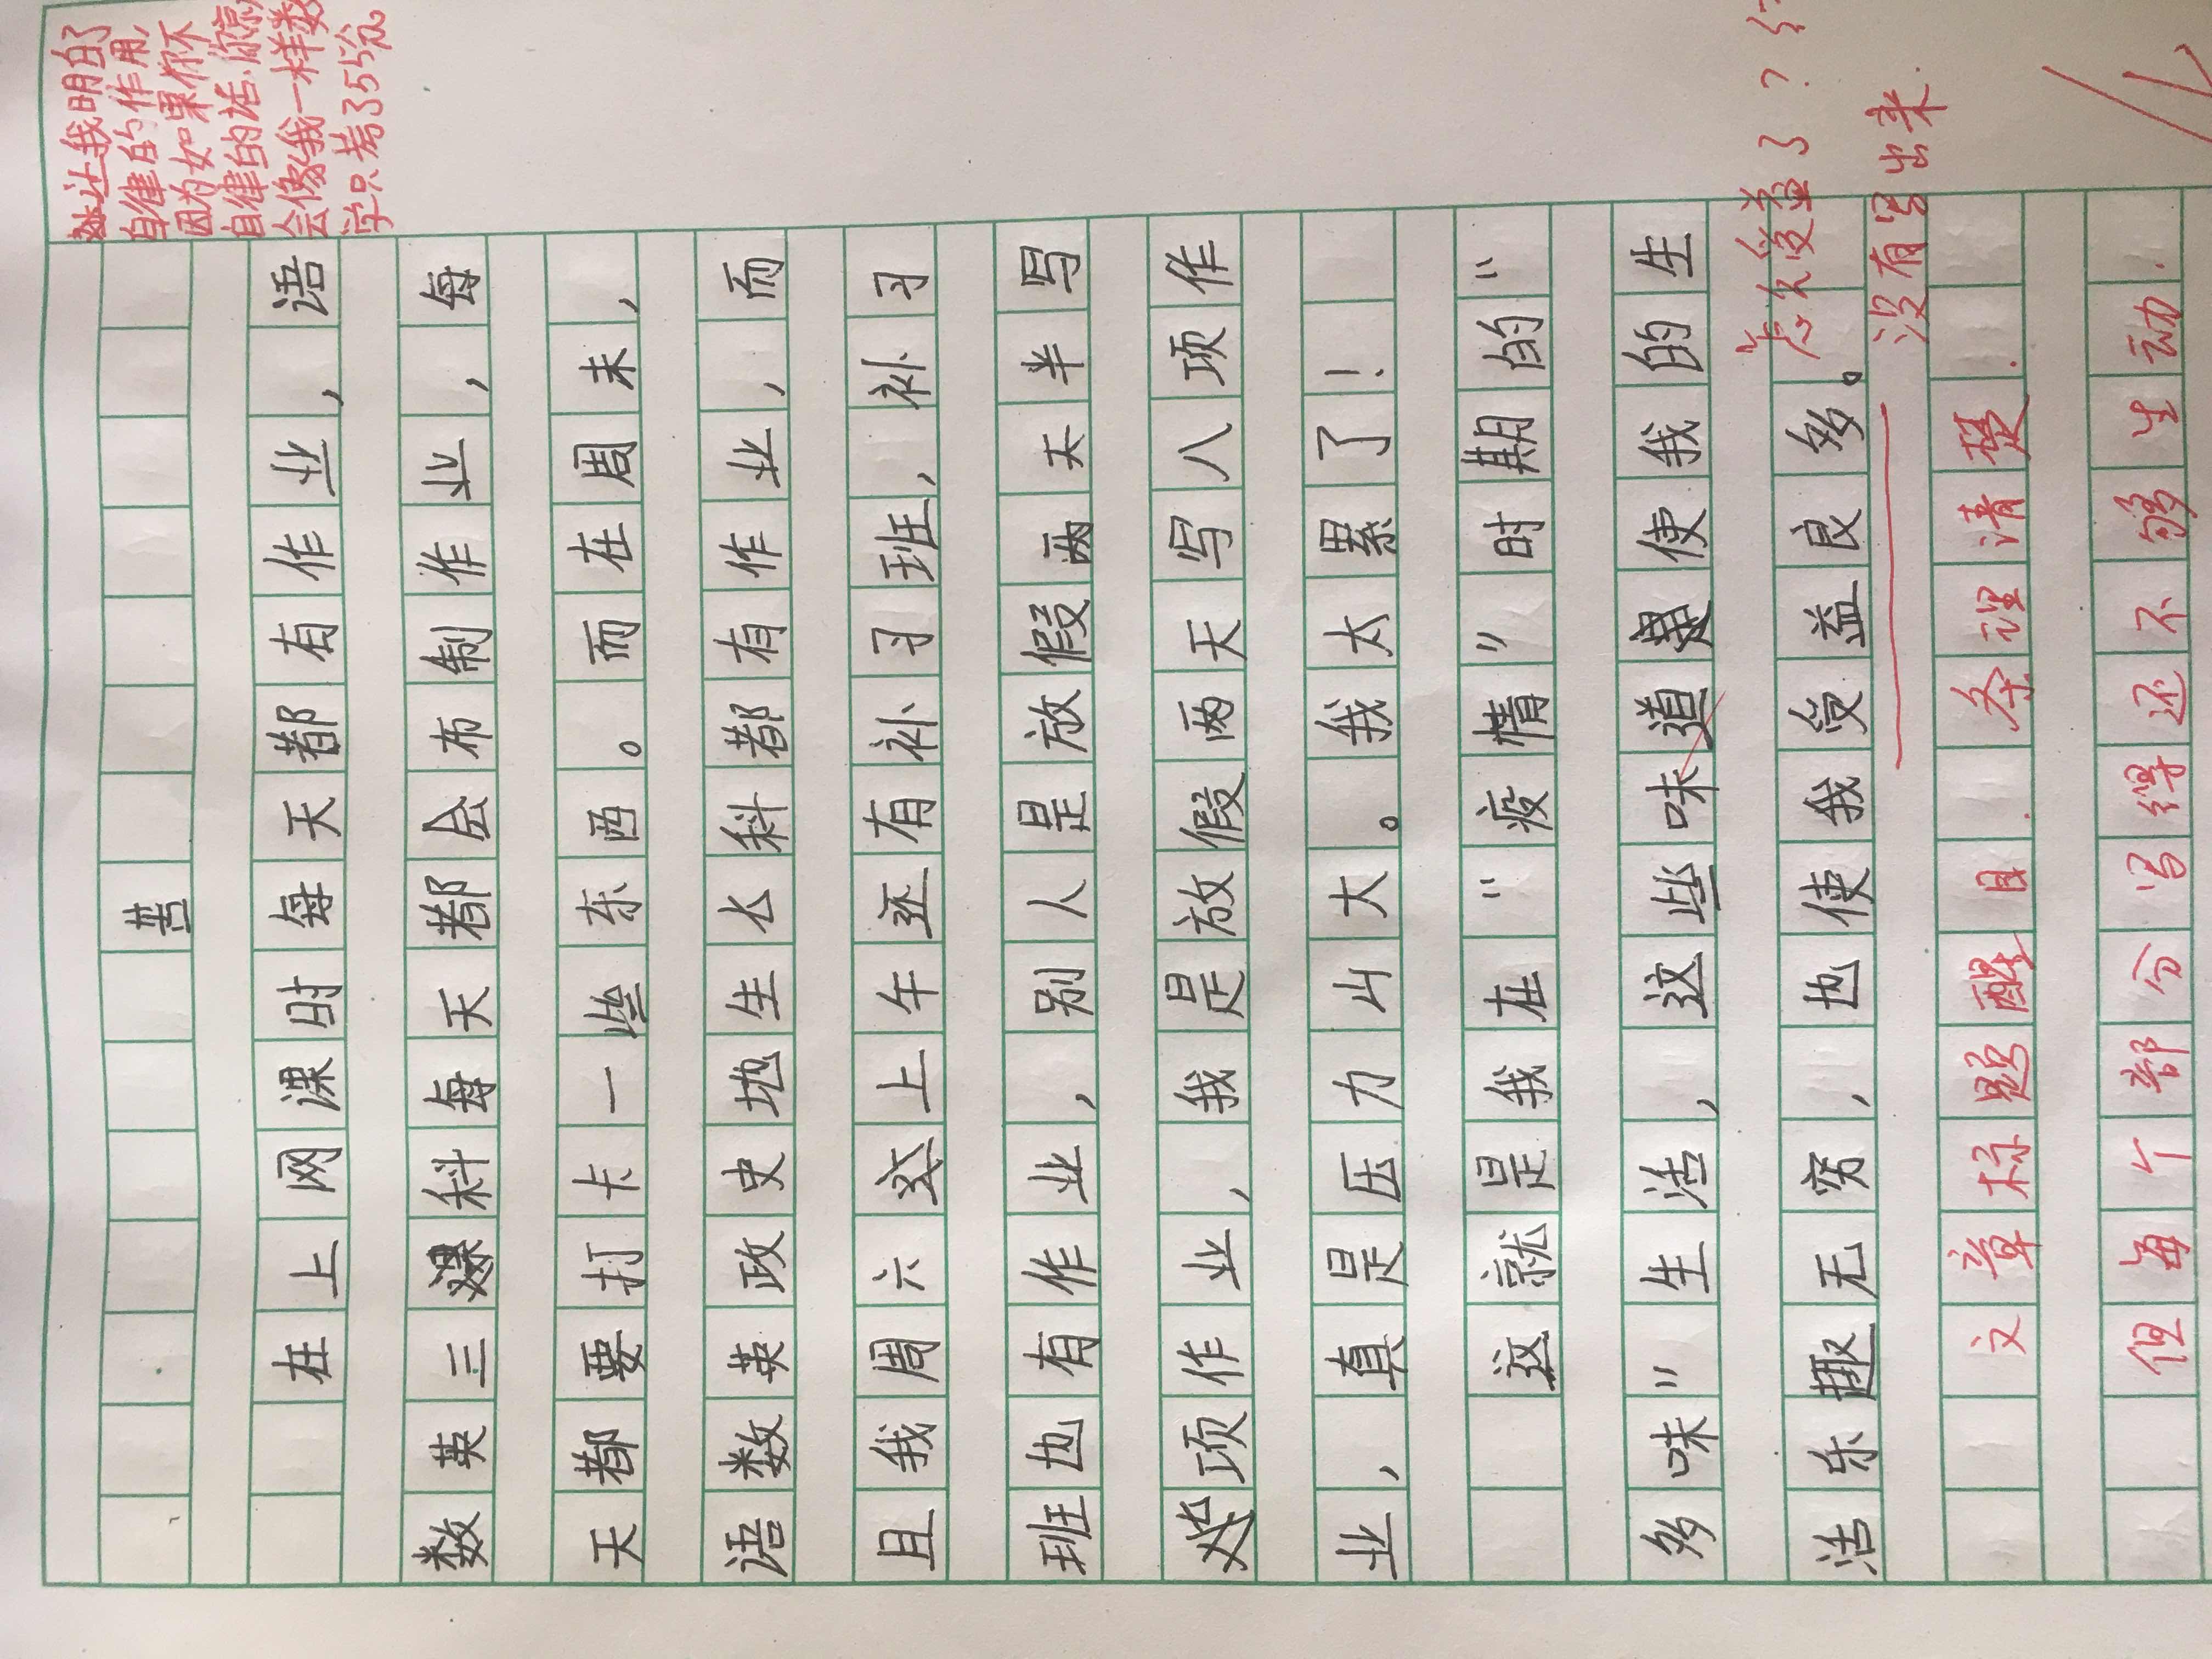 让我明白了
自律的作用,
因为如果你不
自律的话,你就
会像我一样数
学只考了55分
苦
在上网课时每天都有作业,语
数英三科每天都会布制作业,每
天都要打卡一些东西。而在周末,
语数英政史地生七科都有作业,而
且我周六上午还有补习班,补习
班也有作业,别人是放假两天半写
项作业,我是放假两天写八项作
业,真是压力山大。我太累了!
这就是我在"疫情"时期的"
多味"生活,这些味道使我的生
活乐趣无穷,也使我受益良多。
怎么受益了?
没有写出来.
文章标题醒目.条理清楚.
但每个部分写得还不够生动.